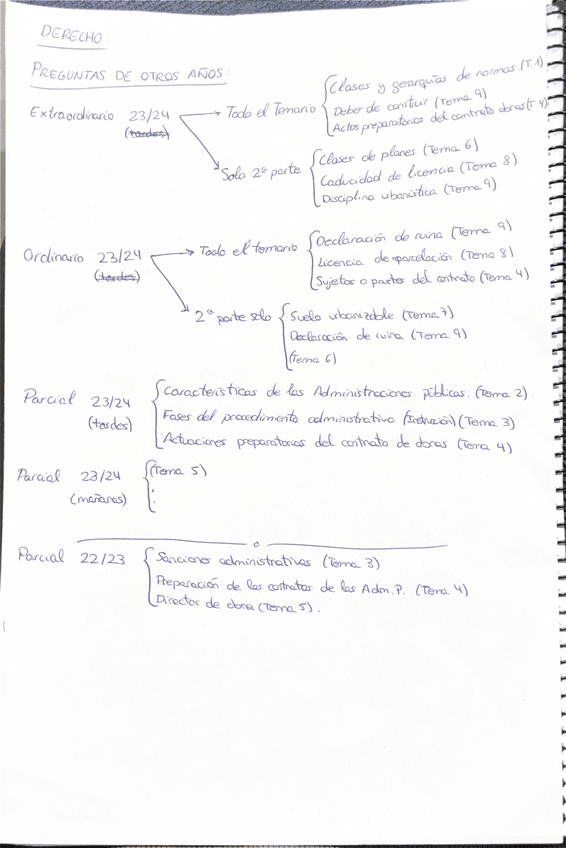 DERECHO:
PREGUNTAS DE OTROS AÑOS:
Extraordinario 23/24
(tardes)
Todo el Temario
Clases y gerarquías de normas (T.1)
Deber de construir (Tema 9)
Actos preparatorios del contrato obras (T.4)
Solo 2ª parte
Clases de planes (Tema 6)
Caducidad de licencia (Tema 8)
Disciplina urbanística (Tema 9)
Ordinario 23/24
(tardes)
Todo el temario
Declaración de ruina (Tema 9)
Licencia de parcelación (Tema 8)
Sujetos o partes del contrato (Tema 4)
2ª parte solo
Suelo urbanizable (Tema 7)
Declaración de ruina (Tema 9)
(Tema 6)
Parcial 23/24
(tardes)
Características de las Administraciones públicas. (Tema 2)
Fases del procedimiento administrativo (Instrucción) (Tema 3)
Actuaciones preparatorias del contrato de obras (Tema 4)
Parcial 23/24
(mañanas)
(Tema 5)
Parcial 22/23
Sanciones administrativas (Tema 3)
Preparación de los contratos de las Adm. P. (Tema 4)
Director de obra (Tema 5).